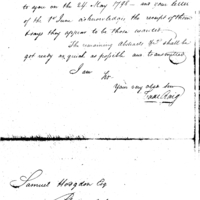 to you on the 24 May 1798 – and can letter
of the 1st June acknowledges the receipt of them
they appear to be those wanted.
The remaining Abstracts &c shall be
got ready as quick as possible and transmitted
I am Sir
Your very obed Serv
Isaac Craig
Samuel Hodgdon Esq